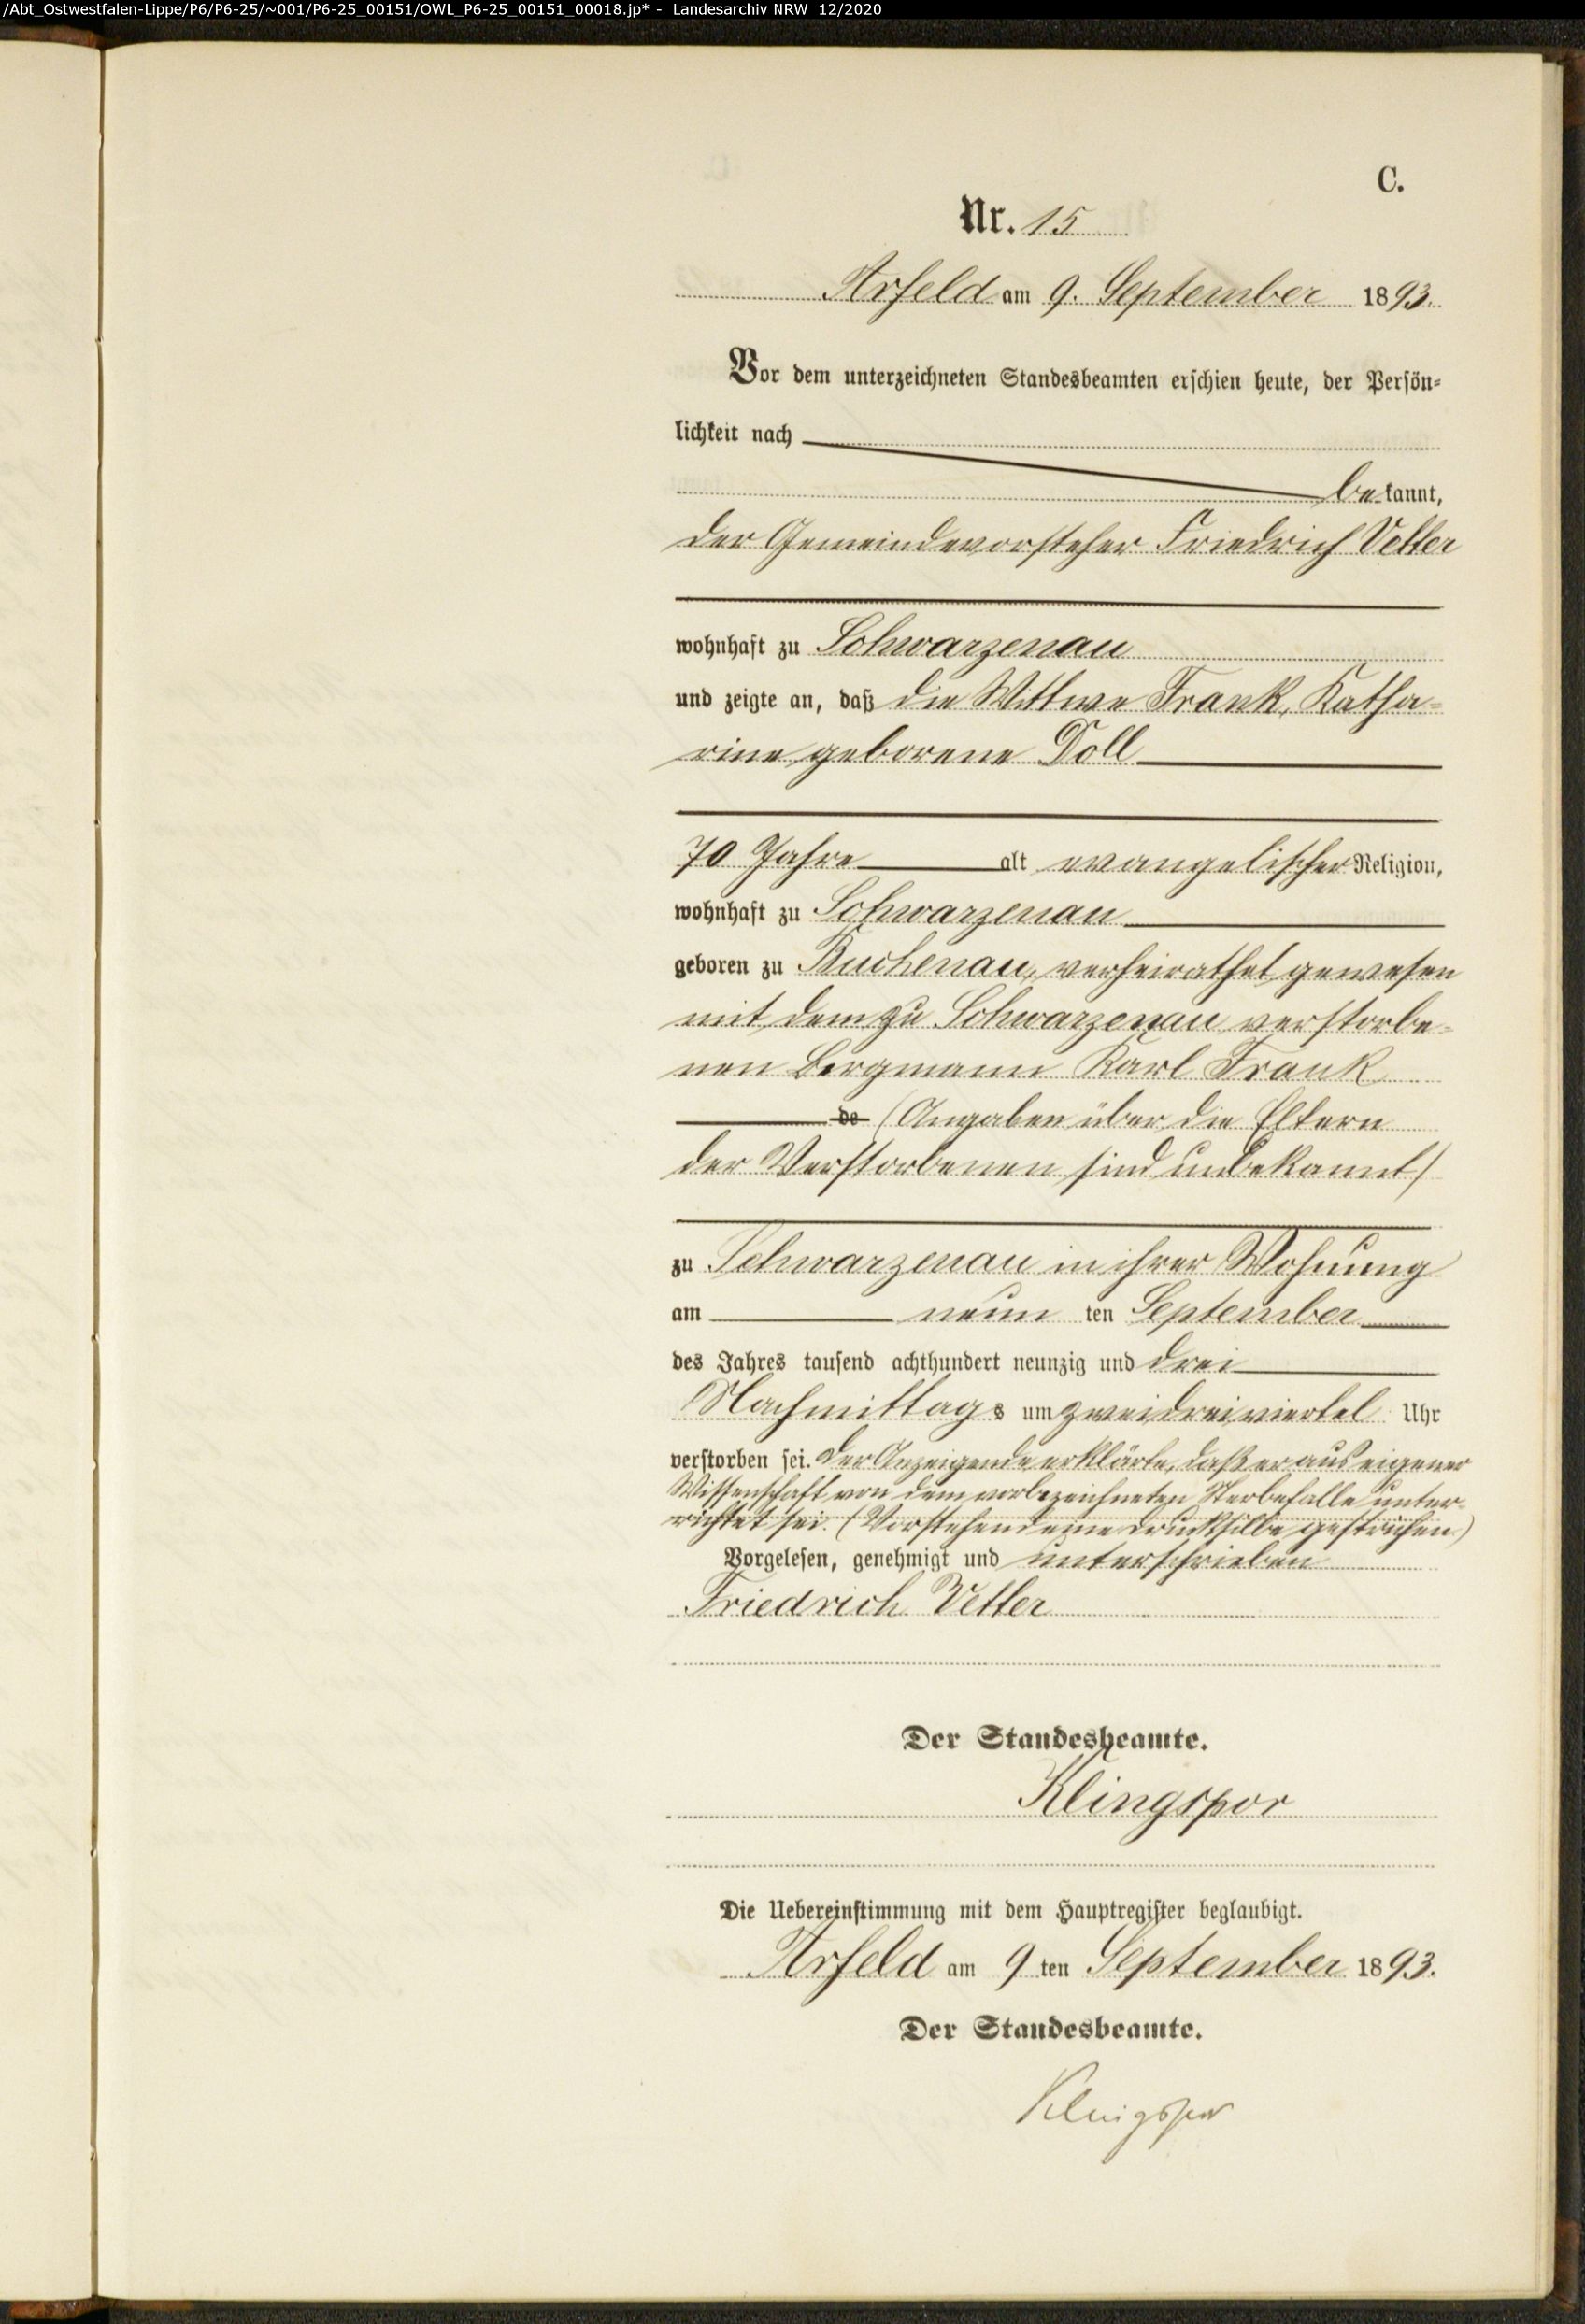 /Abt_Ostwestfalen-Lippe/P6/P6-25/~001/P6-25_00151/OWL_P6-25_00151_00018.jp* - Landesarchiv NRW 12/2020
C.
Nr. 15
Arfeld am 9. September 1893.
Vor dem unterzeichneten Standesbeamten erschien heute, der Persön-
lichkeit nach
bekannt,
der Gemeindevorsteher Friedrich Vetter
wohnhaft zu Schwarzenau
und zeigte an, daß die Wittwe Frank, Katha-
rine geborene Doll
70 Jahre alt evangelischer Religion,
wohnhaft zu Schwarzenau
geboren zu Buchenau, verheirathet gewesen
mit dem zu Schwarzenau verstorbe-
nen Bergmann Karl Frank
de (Angaben über die Eltern
der Verstorbenen sind unbekannt)
zu Schwarzenau in ihrer Wohnung
am neun ten September
des Jahres tausend achthundert neunzig und drei
Nachmittags um zweidreiviertel Uhr
verstorben sei. Der Anzeigende erklärte, daß er aus eigener
Wissenschaft von dem vorbezeichneten Sterbefalle unter-
richtet sei. (Vorstehend eine Drucksilbe gestrichen)
Vorgelesen, genehmigt und unterschrieben
Friedrich Vetter
Der Standesbeamte.
Klingspor
Die Uebereinstimmung mit dem Hauptregister beglaubigt.
Arfeld am 9 ten September 1893.
Der Standesbeamte.
Klingspor